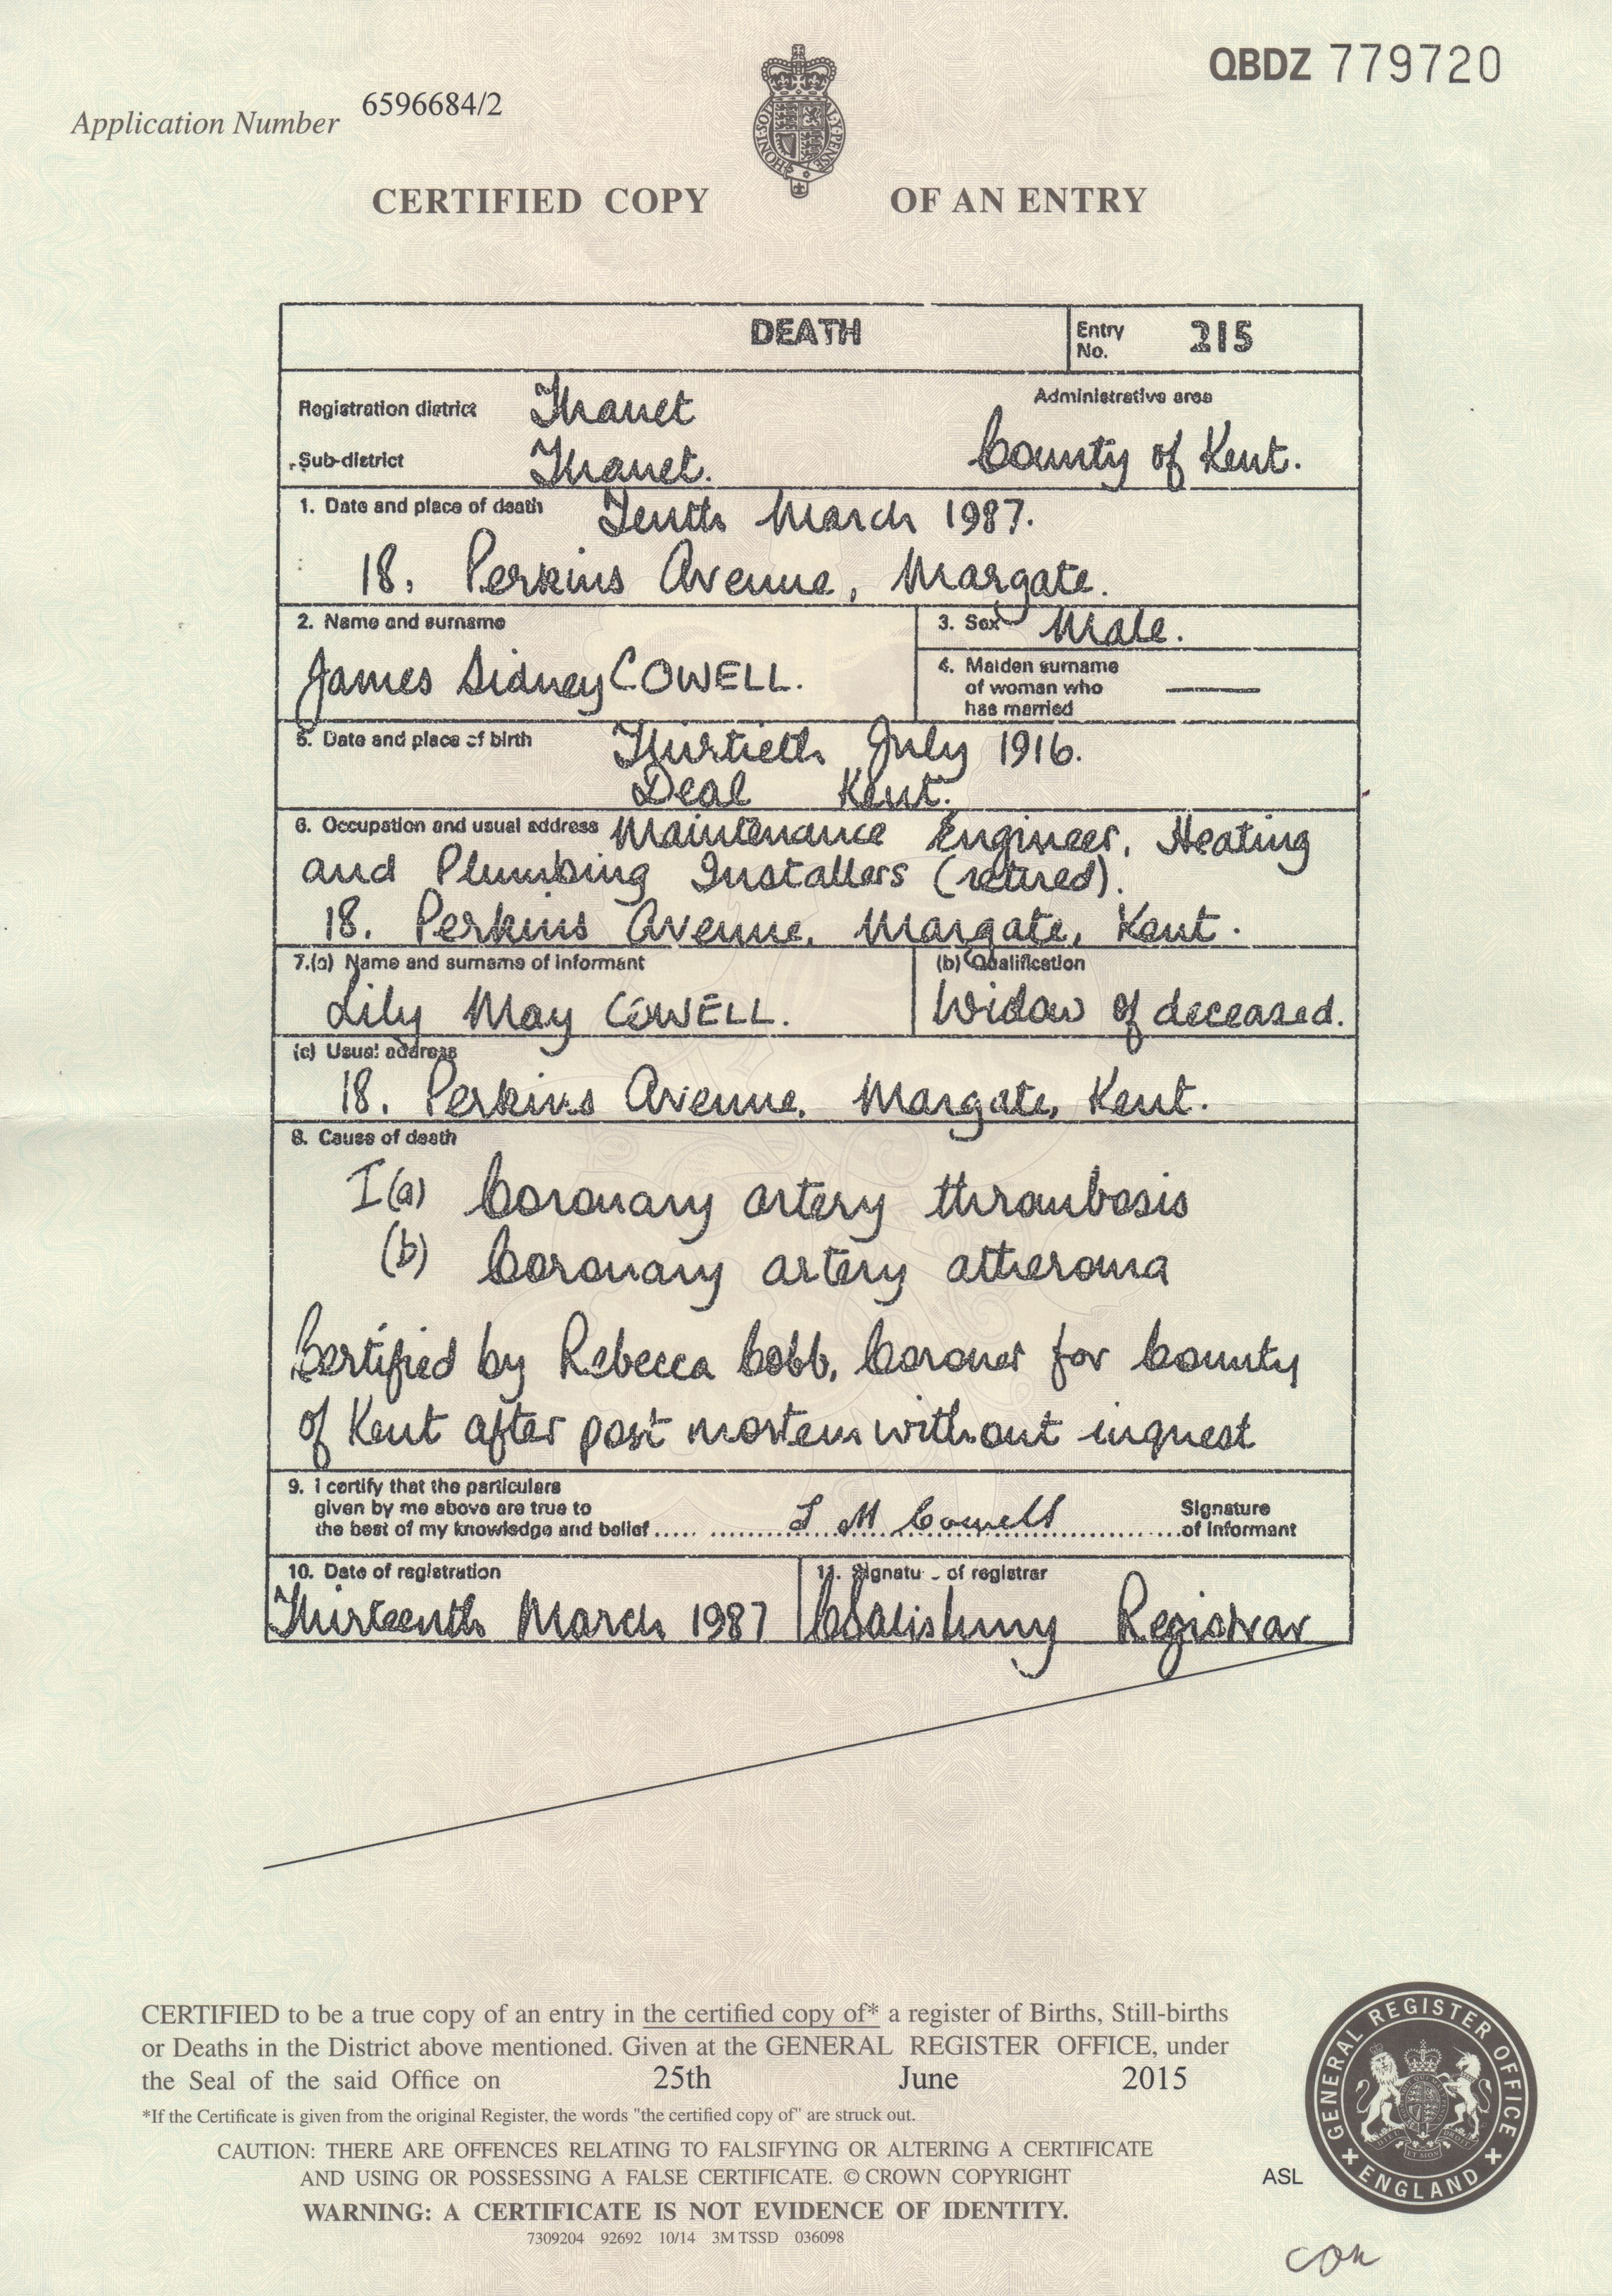 QBDZ 779720
Application Number 6596684/2
CERTIFIED COPY OF AN ENTRY
DEATH
Entry No. 215
Registration district Thanet
Administrative area
Sub-district Thanet.
County of Kent.
1. Date and place of death Tenth March 1987.
18, Perkins Avenue, Margate.
2. Name and surname
3. Sex Male.
James Sidney COWELL.
4. Maiden surname
of woman who
has married
5. Date and place of birth Thirtieth July 1916.
Deal Kent.
6. Occupation and usual address Maintenance Engineer, Heating
and Plumbing Installers (retired).
18. Perkins Avenue, Margate, Kent.
7.(a) Name and surname of informant
(b) Qualification
Lily May COWELL.
Widow of deceased.
(c) Usual address
18. Perkins Avenue, Margate, Kent.
8. Cause of death
I(a) Coronary artery thrombosis
(b) Coronary artery atheroma
Certified by Rebecca Cobb, Coroner for County
of Kent after post mortem without inquest
9. I certify that the particulars
given by me above are true to
the best of my knowledge and belief L M Cowell
Signature
of informant
10. Date of registration
11. Signatu of registrar
Thirteenth March 1987
Registrar
CERTIFIED to be a true copy of an entry in the certified copy of* a register of Births, Still-births
or Deaths in the District above mentioned. Given at the GENERAL REGISTER OFFICE, under
the Seal of the said Office on 25th June 2015
*If the Certificate is given from the original Register, the words "the certified copy of" are struck out.
CAUTION: THERE ARE OFFENCES RELATING TO FALSIFYING OR ALTERING A CERTIFICATE
AND USING OR POSSESSING A FALSE CERTIFICATE. © CROWN COPYRIGHT
WARNING: A CERTIFICATE IS NOT EVIDENCE OF IDENTITY.
7309204 92692 10/14 3M TSSD 036098
ASL
GENERAL REGISTER OFFICE
ENGLAND